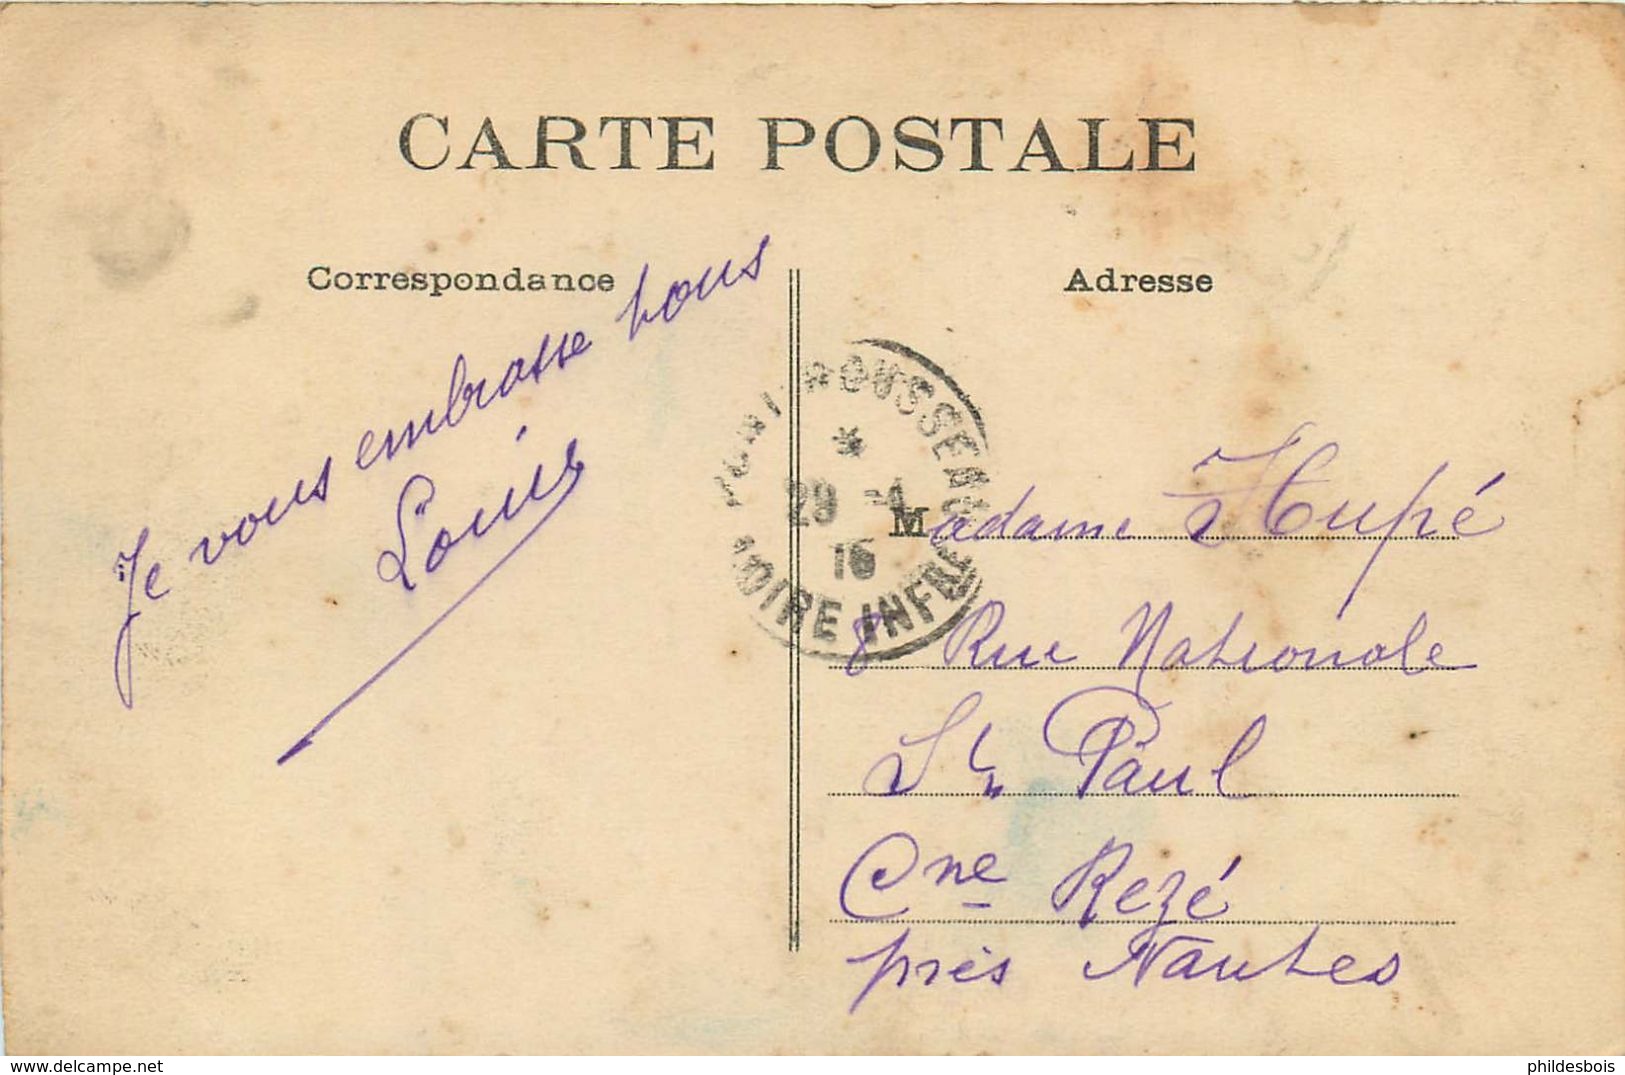 CARTE POSTALE
Correspondance
Je vous embrasse tous
Louis
Adresse
PONT ROUSSEAU
29 -1
16
LOIRE INFRE
Madame Hupé
8 Rue Nationale
St Paul
Cne Rezé
près Nantes
https://www.delcampe.net
phildesbois